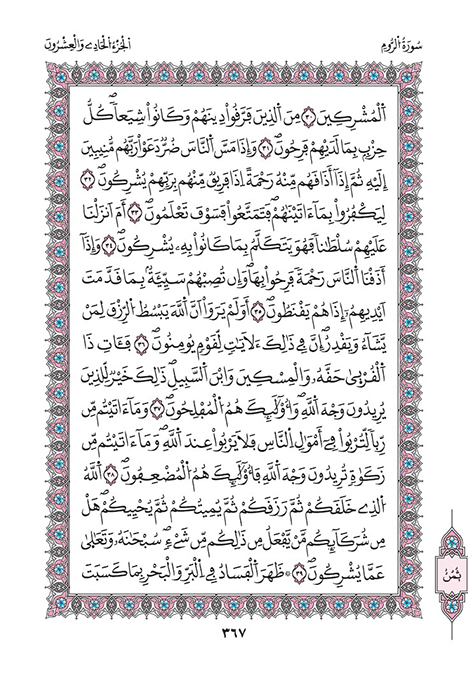 سُورَةُ الرُّومِ
الْجُزْءُ الْحَادِي وَالْعِشْرُونَ
اَ۬لْمُشْرِكِينَ ٣٠ مِنَ اَ۬لذِينَ فَرَّقُواْ دِينَهُمْ وَكَانُواْ شِيَعاٗ كُلُّ
حِزْبِۢ بِمَا لَدَيْهِمْ فَرِحُونَ ٣١ وَإِذَا مَسَّ اَ۬لنَّاسَ ضُرّٞ دَعَوْاْ رَبَّهُم مُّنِيبِينَ
إِلَيْهِ ثُمَّ إِذَا أَذَاقَهُم مِّنْهُ رَحْمَةً اِذَا فَرِيقٞ مِّنْهُم بِرَبِّهِمْ يُشْرِكُونَ ٣٢
لِيَكْفُرُواْ بِمَا ءَاتَيْنَٰهُمْ فَتَمَتَّعُواْ فَسَوْفَ تَعْلَمُونَ ٣٣ أَمَ اَنزَلْنَا
عَلَيْهِمْ سُلْطَٰناٗ فَهُوَ يَتَكَلَّمُ بِمَا كَانُواْ بِهِۦ يُشْرِكُونَ ٣٤ وَإِذَا
أَذَقْنَا اَ۬لنَّاسَ رَحْمَةٗ فَرِحُواْ بِهَا وَإِن تُصِبْهُمْ سَيِّئَةُۢ بِمَا قَدَّمَتَ
اَيْدِيهِمُۥ إِذَا هُمْ يَقْنَطُونَ ٣٥ أَوَلَمْ يَرَوَاْ اَنَّ اَ۬للَّهَ يَبْسُطُ اُ۬لرِّزْقَ لِمَنْ
يَّشَآءُ وَيَقْدِرُ إِنَّ فِي ذَٰلِكَ ءَلَايَٰتٖ لِّقَوْمٖ يُومِنُونَ ٣٦ فَـَٔاتِ ذَا
اَ۬لْقُرْبَىٰ حَقَّهُۥ وَالْمِسْكِينَ وَابْنَ اَ۬لسَّبِيلِ ذَٰلِكَ خَيْرٞ لِّلذِينَ
يُرِيدُونَ وَجْهَ اَ۬للَّهِ وَأُوْلَٰٓئِكَ هُمُ اُ۬لْمُفْلِحُونَ ٣٧ وَمَا ءَاتَيْتُم مِّن
رِّباٗ لِّتُرْبُواْ فِي أَمْوَٰلِ اِ۬لنَّاسِ فَلَا يَرْبُواْ عِندَ اَ۬للَّهِ وَمَا ءَاتَيْتُم مِّن
زَكَوٰةٖ تُرِيدُونَ وَجْهَ اَ۬للَّهِ فَأُوْلَٰٓئِكَ هُمُ اُ۬لْمُضْعِفُونَ ٣٨ اَ۬للَّهُ
اُ۬لذِي خَلَقَكُمْ ثُمَّ رَزَقَكُمْ ثُمَّ يُمِيتُكُمْ ثُمَّ يُحْيِيكُمْ هَلْ
مِن شُرَكَآئِكُم مَّنْ يَّفْعَلُ مِن ذَٰلِكُم مِّن شَےْءٖ سُبْحَٰنَهُۥ وَتَعَٰلَىٰ
عَمَّا يُشْرِكُونَ ٣٩ ظَهَرَ اَ۬لْفَسَادُ فِي اِ۬لْبَرِّ وَالْبَحْرِ بِمَا كَسَبَتَ
ثُمُنْ
٣٦٧